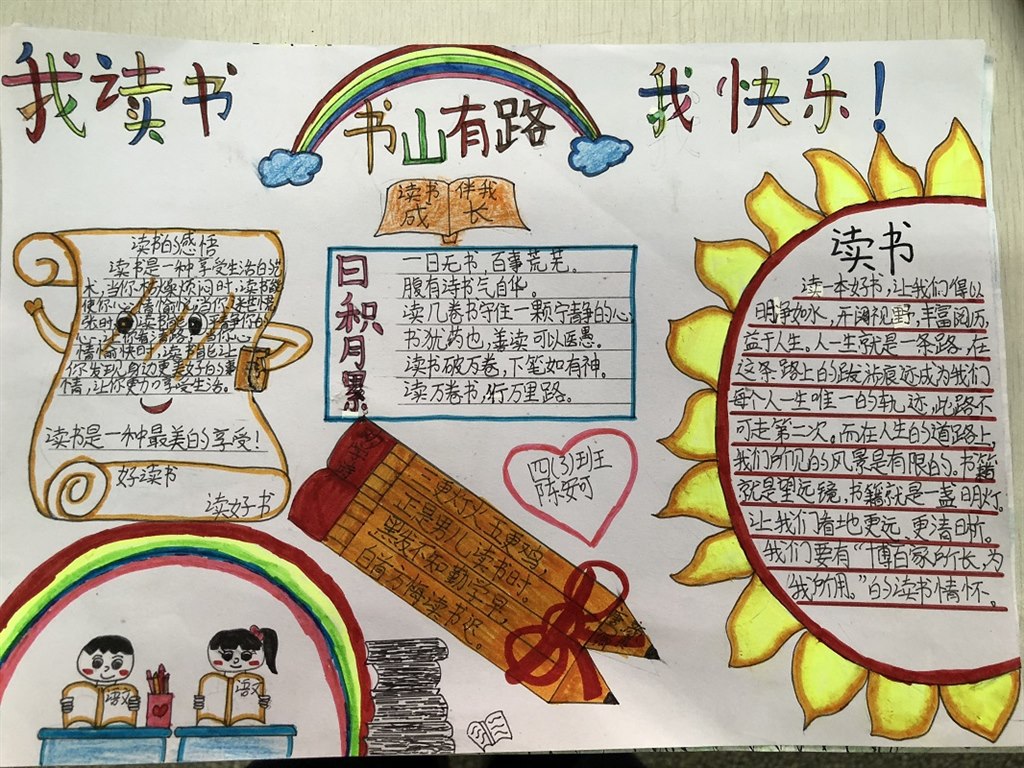 我读书
书山有路
我快乐！
读书 伴我
成 长
读书的感悟
读书是一种享受生活的艺
情，让你更力享受生活。
读书是一种最美的享受！
好读书
读好书
日积月累
一日无书，百事荒芜。
腹有诗书气自华。
读几卷书守住一颗宁静的心
书犹药也，善读可以医愚。
读书破万卷，下笔如有神。
读万卷书，行万里路。
四(3)班王
陈
三更灯火五更鸡，
正是男儿读书时。
黑发不知勤学早，
白首方悔读书迟。
读书
读一本好书，让我们得以
明净如水，开阔视野，丰富阅历，
益于人生。人一生就是一条路，在
这条路上的跋涉痕迹成为我们
每个人一生唯一的轨迹，此路不
可走第二次。而在人生的道路上，
我们所见的风景是有限的。书籍
就是望远镜，书籍就是一盏明灯。
让我们看地更远、更清晰。
我们要有“博百家所长，为
我所用。”的读书情怀。
语文
语文